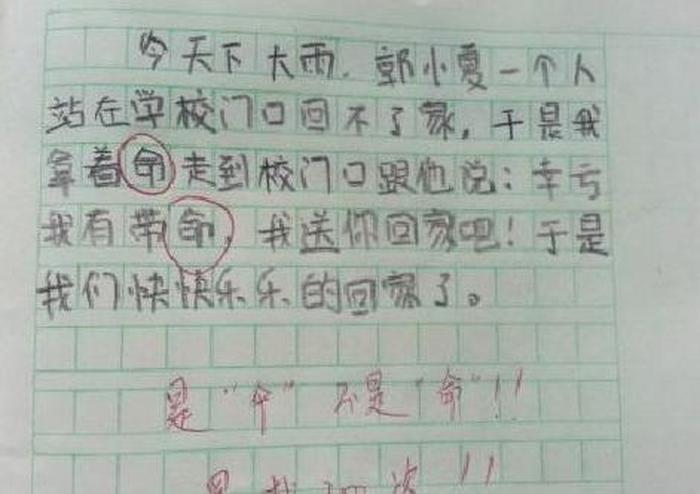 今天下大雨，郭小夏一个人
站在学校门口回不了家，于是我
拿着命走到校门口跟他说：幸亏
我有带命，我送你回家吧！于是
我们快快乐乐的回家了。
是“伞”不是“命”!!